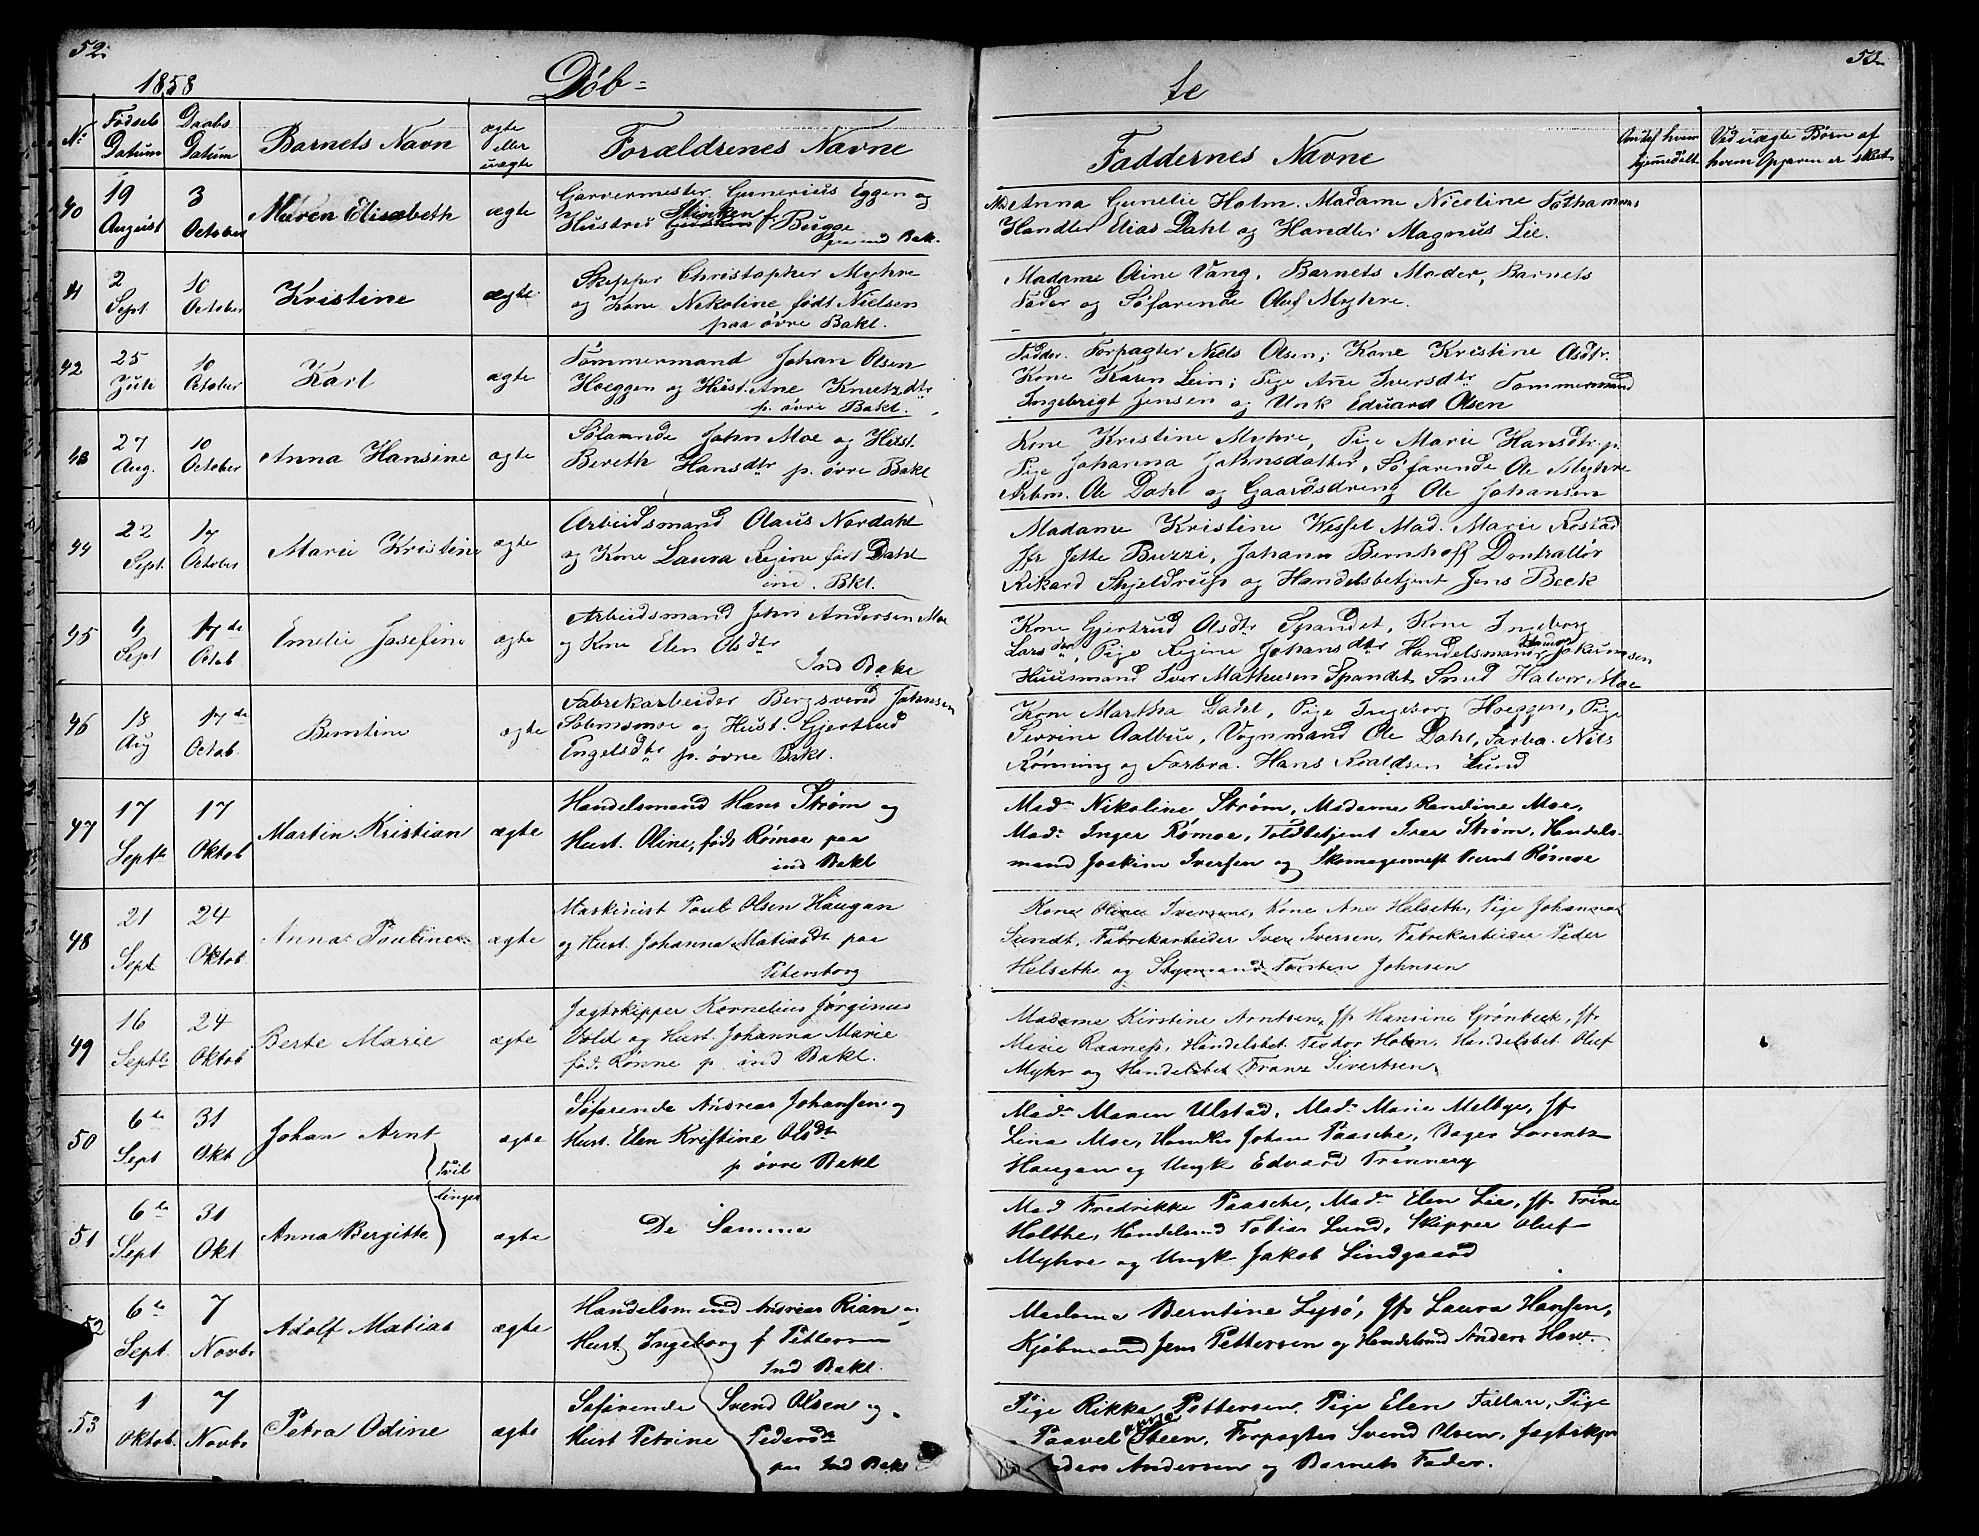 52.
1858
Döb=
No
Födsels Datum
Daabs Datum
Barnets Navn
ægte eller uægte
Forældrenes Navne
40
19 August
3 October
Maren Elisabeth
ægte
Garvermester Gunerius Eggen og
Hustru f. Bugge
ind Bak.
41
2 Sept
10 October
Kristine
ægte
Skipper Christopher Myhre
og Kone Nikoline født Nielsen
paa övre Bakl.
42
25 Juli
10 October
Karl
ægte
Tömmermand Johan Olsen
Hoeggen og Hust. Ane Knutzdtr
p. övre Bakl.
43
27 Aug.
10 October
Anna Hansine
ægte
Söfarende John Moe og Hust.
Bereth Hansdtr p. övre Bakl
44
22 Sept.
17 October
Marie Kristine
ægte
Arbeidsmand Olaus Nordahl
og Kone Laura Regine født Dahl
ini. Bkl.
45
Sept
17de Octob
Emelie Josefine
ægte
Arbeidsmand John Andersen Moe
og Kone Elen Olsdtr
Ind Bakl
46
18 Aug
17de Octob.
Berntine
ægte
Fabrikarbeider Bergsvend Johnsen
og Hust. Gjertrud
Engelsdtr p. övre Bakl.
47
17 Septb
17 Oktob
Martin Kristian
ægte
Handelsmand Hans Ström og
Hust. Oline, föd Römoe paa
ind Bakl
48
21 Sept
24 Oktob
Anna Pouline
ægte
Maskinist Poul Olsen Haugan
og Hust. Johanna Matiasdt paa
Petersborg
49
16 Septb
24 Oktob
Berte Marie
ægte
Jagtskipper Kornelius Jörginus
Vold og Hust. Johanna Marie
föd. Rönne p. ind Bakl.
50
6te Sept
31 Okt
Johan Arnt
Tvil
linger
ægte
Söfarende Andreas Johansen og
Hust. Elen Kristine Olsdt
p övre Bakl
51
6te Sept
31 Okt
Anna Bergitte
ægte
De Samme
52
6te Sept.
7 Novbr
Adolf Matias
ægte
Handelsmand Andreas Rian og
Hust Ingeborg f Pettersen
Ind Bakl.
53
1 Oktob.
7 Novbr
Petra Odine
ægte
Söfarende Svend Olsen og
Hust Petrine Pedersdt
paa Ind Bakl
53
te
Faddernes Navne
Andet hvem
hjemmedöbt
Ved uægte Börn af
hvem Opgaven er skeet
Anna Gunelie Holm. Madame Nicoline
Handler Elias Dahl og Handler Magnus Lie.
Madame Oline Vang, Barnets Moder, Barnets
Fader og Söfarende Oluf Myhre.
Fadder. Forpagter Niels Olsen; Kone Kristine Olsdtr.
Kone Karen Lein; Pige Ane Iversdtr Tömmermand
Ingebrigt Jensen og Unk Eduard Olsen
Kone Kristine Myhre, Pige Marie Hansdtr.
Pige Johanna Johnsdatter, Söfarende Ole Myhre
Arbm. Ole Dahl og Gaardsdreng Ole Johansen
Madame Kristine Wessel Mad. Marie Rostad
Jfr Jette Buzzi, Johann Bernhoff
Rikard Skjeldrup og Handelsbetjent Jens Beck
Kone Gjertrud Olsdtr Spandet, Kone Ingeborg
Larsdtr, Pige Regine Johansdtr Handelsmand
Huusmand Iver Mathisen Spandet Smed Halvor Moe
Kone Martha Dahl, Pige Ingeborg Hoeggen, Pige
Serrine Aalbue, Vognmand Ole Dahl, Farba. Nils
Rönning og Farbra. Hans Roaldsen Lund
Mad. Nikoline Ström, Madame Randine Moe,
Mad. Inger Römoe, Toldbetjent Iver Ström, Handels-
mand Joakim Iversen og Skomagermest Bernt Römoe
Kone Oline Iversen, Kone Ane Helseth, Pige Johanna
Sundt, Fabrikarbeider Iver Iversen, Fabrikarbeider Peder
Helseth og Styrmand Torsten Johnsen
Madame Kirstine Arntsen, Jfr Hansine Grönbeck, Jfr
Marie Raaness, Handelsbet. Teodor Holm, Handelsbet Oluf
Myhr og Handelsbet Franz Sivertsen
Mad. Maren Ulstad, Mad. Marie Melbye, Jfr
Lina Moe, Handler Johan Paasche, Bager Lorentz
Haugan og Ungk Edvard Trennery
Mad Fredrikke Paasche, Mad. Elen Lie, Jfr Trine
Holthe, Handelsmd Tobias Lund, Skipper Oluf
Myhre og Ungk Jakob Lindgaard
Madame Berntine Lysö, Jfr Laura Hansen,
Kjöbmand Jens Pettersen og Handelsmd Anders How.
Pige Rikke Pettersen, Pige Elen Fættan, Pige
Paavel Steen, Forpagter Svend Olsen, Jagtskpr
Anders Andersen og Barnets Fader.